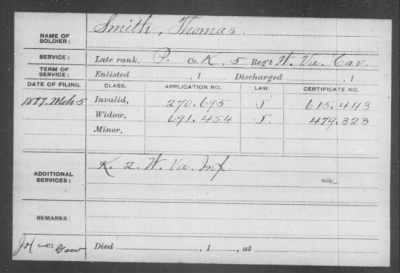 NAME OF SOLDIER: Smith, Thomas
SERVICE: Late rank, P. Co. K. 5 Reg't W. Va. Cav.
TERM OF SERVICE: Enlisted , 1 Discharged , 1
DATE OF FILING. CLASS. APPLICATION NO. LAW. CERTIFICATE NO.
Invalid, 270.695 613.443
Widow, 691.454 479.323
Minor,
ADDITIONAL SERVICES: K. 2. W. Va. Inf
REMARKS:
Died , 1 , at